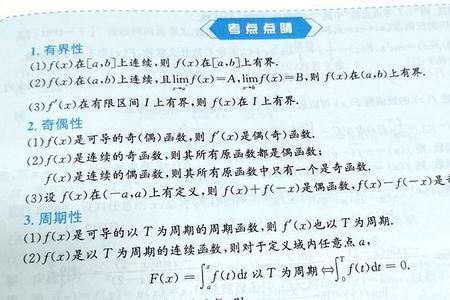 考点点睛
1. 有界性
(1) f(x)在[a,b]上连续,则 f(x)在[a,b]上有界.
(2) f(x)在(a,b)上连续,且lim f(x)=A,lim f(x)=B,则 f(x)在(a,b)上有界.
(3) f′(x)在有限区间 I 上有界,则 f(x)在 I 上有界.
2. 奇偶性
(1) f(x)是可导的奇(偶)函数,则 f′(x)是偶(奇)函数.
(2) f(x)是连续的奇函数,则其所有原函数都是偶函数;
f(x)是连续的偶函数,则其所有原函数中只有一个是奇函数.
(3)设 f(x)在(-a,a)上有定义,则 f(x)+f(-x)是偶函数,f(x)-f(-x)是
3. 周期性
(1) f(x)是可导的以 T 为周期的周期函数,则 f′(x)也以 T 为周期.
(2) f(x)是以 T 为周期的连续函数,则对于定义域内任意点 a,
F(x)=∫ₐˣ f(t)dt 以 T 为周期⇔∫₀ᵀ f(t)dt=0.